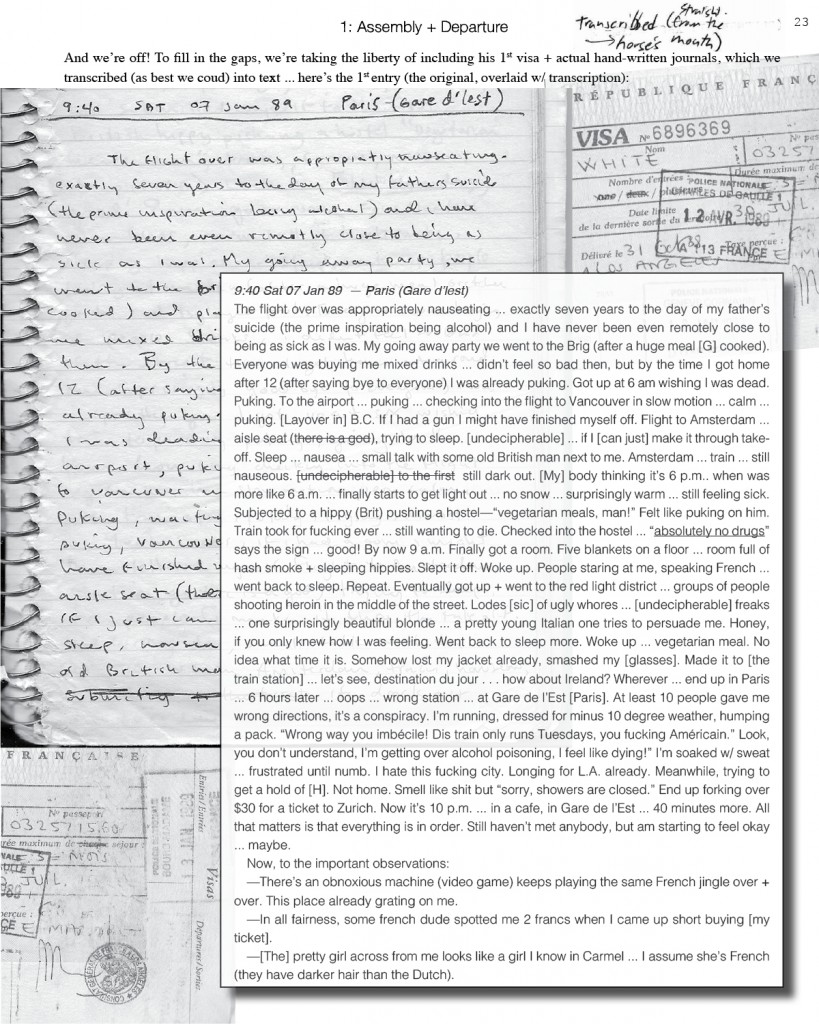 1: Assembly + Departure
transcribed (straight from the
→ horse's mouth)
23
And we're off! To fill in the gaps, we're taking the liberty of including his 1st visa + actual hand-written journals, which we
transcribed (as best we coud) into text ... here's the 1st entry (the original, overlaid w/ transcription):
9:40 SAT 07 Jan 89 Paris-(Gare d'lest)
The flight over was appropiatly nauseating.
exactly seven years to the day of my fathers suicide
(the prime inspiration being alcohol) and i have
never been even remotly close to being as
sick as I was. My going away party, we
went to the
cooked) and
me mixed
them. By the
12 (after saying
already puking.
I was
airport, puking
to vancouver
puking, waiting
puking, Vancouver
have finished
aisle seat (there
if I just can
sleep, nausea
old British
RÉPUBLIQUE FRANÇ
VISA No 6896369
Nom
WHITE
03257
Durée maximum de
Nombre d'entrées
une / deux / plu
POLICE NATIONALE
CHARLES DE GAULLE 1
Date limite
de la dernière sortie du
Délivré le 31
13 FRANCE
LOS ANGELES
9:40 Sat 07 Jan 89 — Paris (Gare d'lest)
The flight over was appropriately nauseating ... exactly seven years to the day of my father's
suicide (the prime inspiration being alcohol) and I have never been even remotely close to
being as sick as I was. My going away party we went to the Brig (after a huge meal [G] cooked).
Everyone was buying me mixed drinks ... didn't feel so bad then, but by the time I got home
after 12 (after saying bye to everyone) I was already puking. Got up at 6 am wishing I was dead.
Puking. To the airport ... puking ... checking into the flight to Vancouver in slow motion ... calm ...
puking. [Layover in] B.C. If I had a gun I might have finished myself off. Flight to Amsterdam ...
aisle seat (there is a god), trying to sleep. [undecipherable] ... if I [can just] make it through take-
off. Sleep ... nausea ... small talk with some old British man next to me. Amsterdam ... train ... still
nauseous. [undecipherable] to the first still dark out. [My] body thinking it's 6 p.m.. when was
more like 6 a.m. ... finally starts to get light out ... no snow ... surprisingly warm ... still feeling sick.
Subjected to a hippy (Brit) pushing a hostel—"vegetarian meals, man!" Felt like puking on him.
Train took for fucking ever ... still wanting to die. Checked into the hostel ... "absolutely no drugs"
says the sign ... good! By now 9 a.m. Finally got a room. Five blankets on a floor ... room full of
hash smoke + sleeping hippies. Slept it off. Woke up. People staring at me, speaking French ...
went back to sleep. Repeat. Eventually got up + went to the red light district ... groups of people
shooting heroin in the middle of the street. Lodes [sic] of ugly whores ... [undecipherable] freaks
... one surprisingly beautiful blonde ... a pretty young Italian one tries to persuade me. Honey,
if you only knew how I was feeling. Went back to sleep more. Woke up ... vegetarian meal. No
idea what time it is. Somehow lost my jacket already, smashed my [glasses]. Made it to [the
train station] ... let's see, destination du jour . . . how about Ireland? Wherever ... end up in Paris
... 6 hours later ... oops ... wrong station ... at Gare de l'Est [Paris]. At least 10 people gave me
wrong directions, it's a conspiracy. I'm running, dressed for minus 10 degree weather, humping
a pack. "Wrong way you imbécile! Dis train only runs Tuesdays, you fucking Américain." Look,
you don't understand, I'm getting over alcohol poisoning, I feel like dying!" I'm soaked w/ sweat
... frustrated until numb. I hate this fucking city. Longing for L.A. already. Meanwhile, trying to
get a hold of [H]. Not home. Smell like shit but "sorry, showers are closed." End up forking over
$30 for a ticket to Zurich. Now it's 10 p.m. ... in a cafe, in Gare de l'Est ... 40 minutes more. All
that matters is that everything is in order. Still haven't met anybody, but am starting to feel okay
... maybe.
Now, to the important observations:
—There's an obnoxious machine (video game) keeps playing the same French jingle over +
over. This place already grating on me.
—In all fairness, some french dude spotted me 2 francs when I came up short buying [my
ticket].
—[The] pretty girl across from me looks like a girl I know in Carmel ... I assume she's French
(they have darker hair than the Dutch).
FRANÇAISE
No passeport
Entries/Entrées
Visas
Departures/Sorties